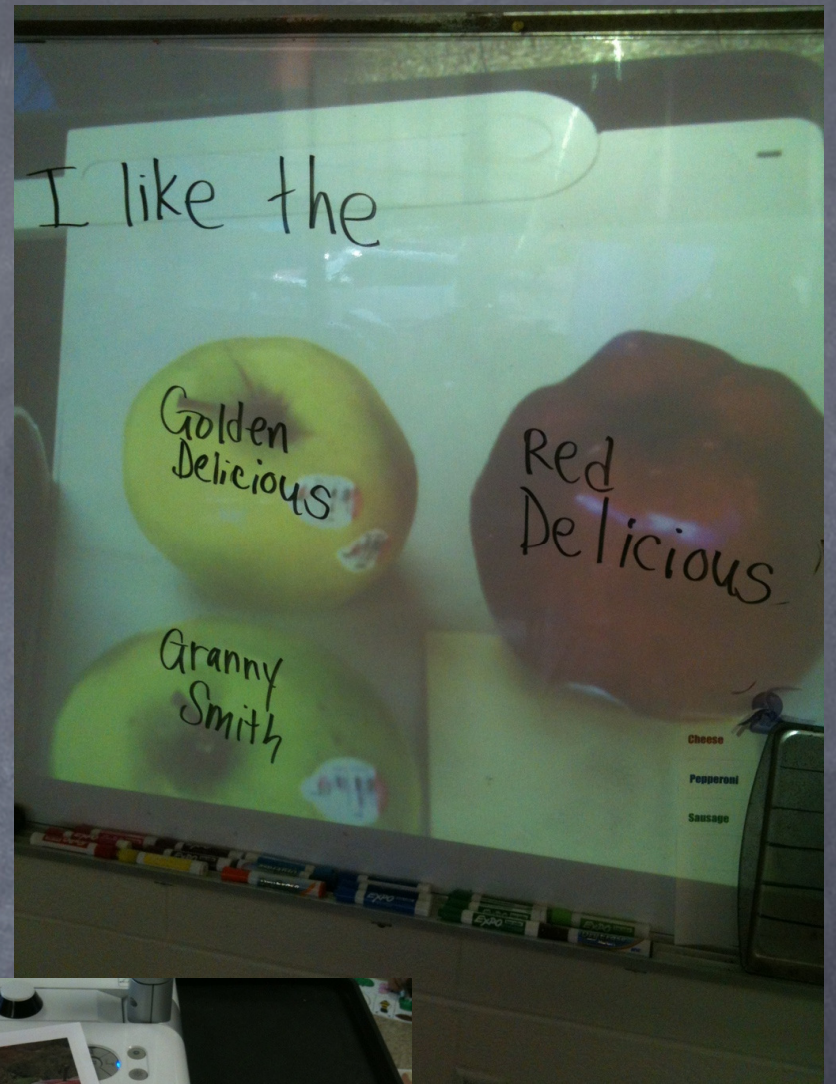 I like the
Golden
Delicious
Red
Delicious
Granny
Smith
Cheese
Pepperoni
Sausage
EXPO
EXPO
EXPO